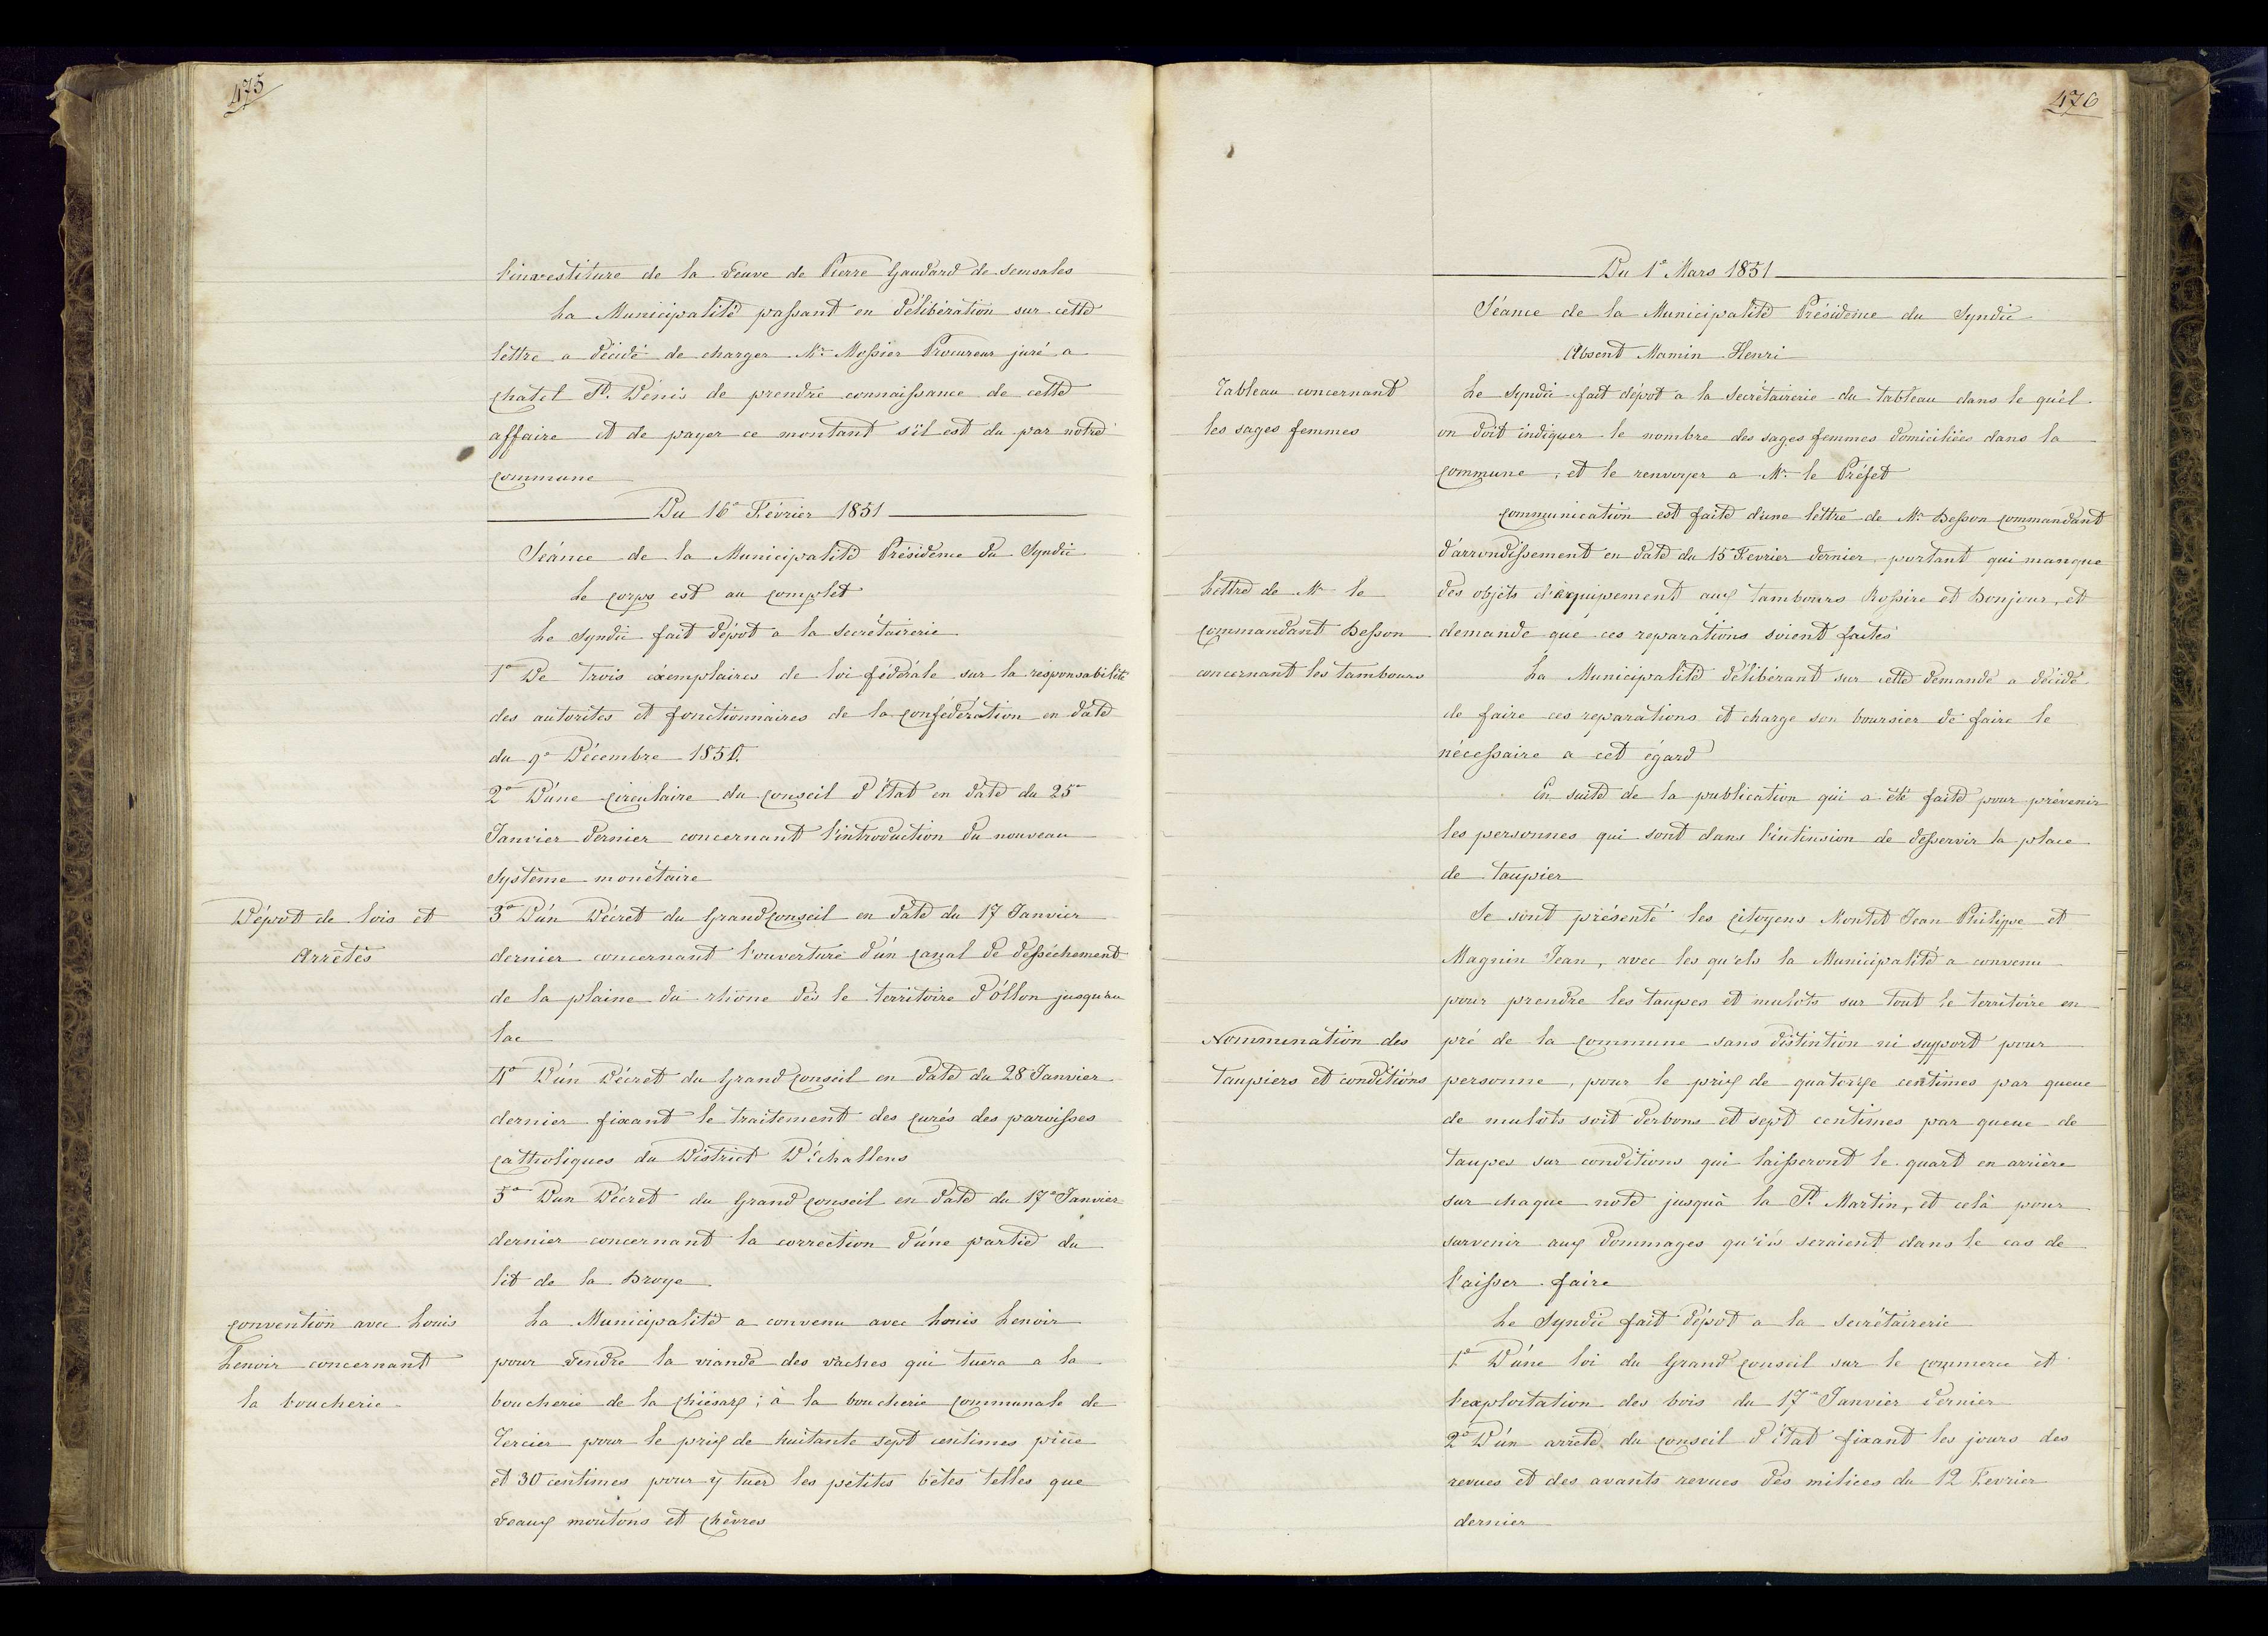 475
l'inavestiture de la veuve de Pierre Gaudard de Semsales
La Municipalité passant en délibération sur cette
lettre a décidé de charger Mr. Mossier Procureur juré a
Chatel St. Dénis de prendre connaissance de cette
affaire et de payer ce montant s'il est du par notre
Commune
Du 16e Février 1851
Séance de la Municipalité Présidence du Syndic
Le Corps est au Complet
Le Syndic fait dépot a la Secrétairerie
1o De trois éxemplaires de loi fédérale sur la résponsabilité
des autorités et fonctionnaires de la Confédération en date
du 9e Décembre 1850.
2o D'une Circulaire du Conseil d'Etat en date du 25e
Janvier dernier concernant l'introduction du nouveau
Système monétaire
Dépot de lois et
Arrêtés
3o D'un Décret du Grand Conseil en date du 17 Janvier
dernier concernant l'ouverture d'un Canal de desséchement
de la plaine du rhône dès le territoire d'ôllon jusqu'au
lac
4o D'un Décret du Grand Conseil en date du 28 Janvier
dernier fixant le traitement des Curés des paroisses
Catholiques du District D'Echallens
5o D'un Décret du Grand Conseil en date du 17e Janvier
dernier concernant la correction d'une partie du
lit de la Broye
Convention avec Louis
Lenoir concernant
la boucherie
La Municipalité a convenu avec Louis Lenoir
pour vendre la viande des vaches qui tuera a la
boucherie de la Chiésaz; à la boucherie Communale de
Tercier pour le prix de huitante sept centimes pièce
et 30 centimes pour y tuer les petites bêtes telles que
veaux moutons et Chèvres
476
Du 1e Mars 1851
Séance de la Municipalité Présidence du Syndic
Absent Mamin Henri
Tableau concernant
les sages femmes
Le Syndic fait dépot a la Secrétairerie du tableau dans le quél
on doit indiquer le nombre des sages femmes domiciliées dans la
Commune, et le renvoyer a Mr. le Préfet
Communication est faite d'une lettre de Mr. Besson Commandant
d'arrondissement en date du 15e Fevrier dernier, portant qui manque
Lettre de Mr. le
Commandant Besson
concernant les tambours
des objets d'équipement aux tambours Rossire et Bonjour, et
demande que ces reparations soient faites
La Municipalité délibérant sur cette demande a décidé
de faire ces reparations et charge son boursier de faire le
nécessaire a cet égard
En suite de la publication qui a été faite pour prévenir
les personnes qui sont dans l'intension de desservir la place
de taupier
Se sont présenté les Citoyens Montet Jean Philippe et
Magnin Jean, avec les qu'els la Municipalité a convenu
pour prendre les taupes et mulots sur tout le territoire en
Nommination des
taupiers et conditions
pré de la Commune sans distintion ni support pour
personne, pour le prix de quatorze centimes par queue
de mulots soit derbons et sept centimes par queue de
taupes sur conditions qui laisseront le quart en arrière
sur chaque note jusquà la St. Martin, et celà pour
survenir aux dommages qu'ils seraient dans le cas de
l'aisser faire
Le Syndic fait dépot a la Secrétairerie
1o D'une loi du Grand Conseil sur le Commerce et
l'exploitation des bois du 17e Janvier dernier
2o D'un arreté du Conseil d'Etat fixant les jours des
revues et des avants revues des milices du 12 Fevrier
dernier